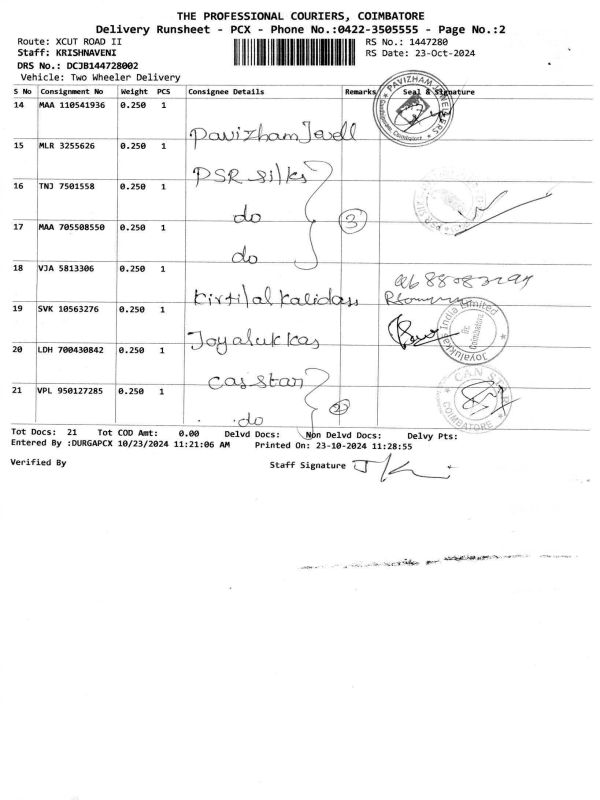 THE PROFESSIONAL COURIERS, COIMBATORE
Delivery Runsheet - PCX - Phone No.:0422-3505555 - Page No.:2
Route: XCUT ROAD II RS No.: 1447280
Staff: KRISHNAVENI RS Date: 23-Oct-2024
DRS No.: DCJB144728002
Vehicle: Two Wheeler Delivery
S No Consignment No Weight PCS Consignee Details Remarks Seal & Signature
14 MAA 110541936 0.250 1 Pavizham Jewell
15 MLR 3255626 0.250 1 PSR Silks
16 TNJ 7501558 0.250 1 do
17 MAA 705508550 0.250 1 do
3
18 VJA 5813306 0.250 1 Kirtilal Kalidass
19 SVK 10563276 0.250 1 Joyalukkas
20 LDH 700430842 0.250 1
21 VPL 950127285 0.250 1 do
2
PAVIZHAM JEWELLERS
Coimbatore
Joyalukkas India Limited
Coimbatore
COIMBATORE
Tot Docs: 21 Tot COD Amt: 0.00 Delvd Docs: Non Delvd Docs: Delvy Pts:
Entered By :DURGAPCX 10/23/2024 11:21:06 AM Printed On: 23-10-2024 11:28:55
Verified By Staff Signature